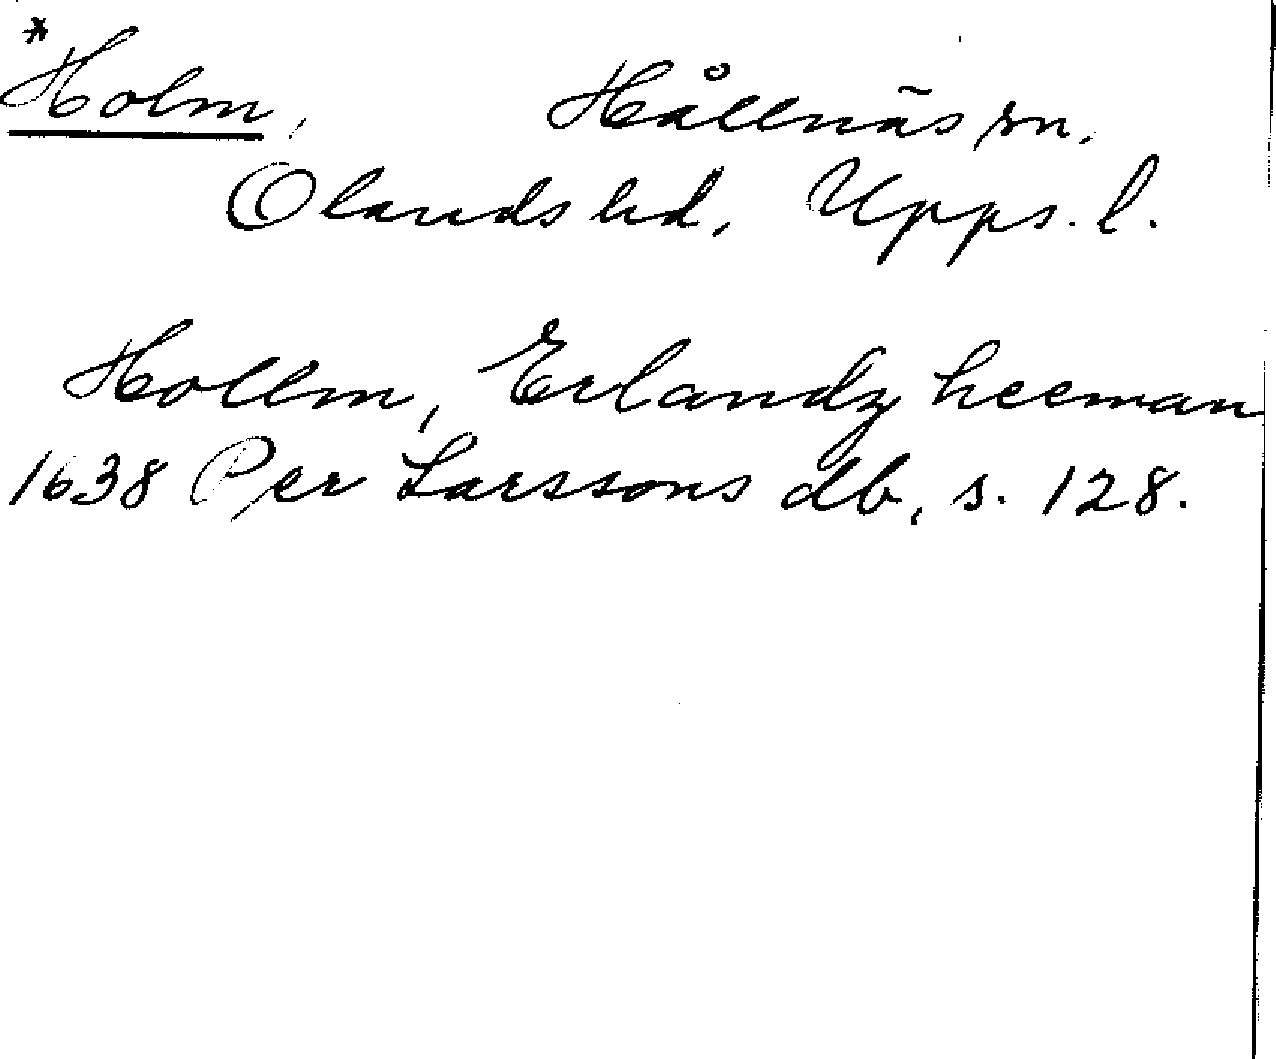 *Holm, Hållnäs sn.
Olands hd, Upps. l.
Hollm, Erlandz heeman
1638 Per Larssons db, s. 128.